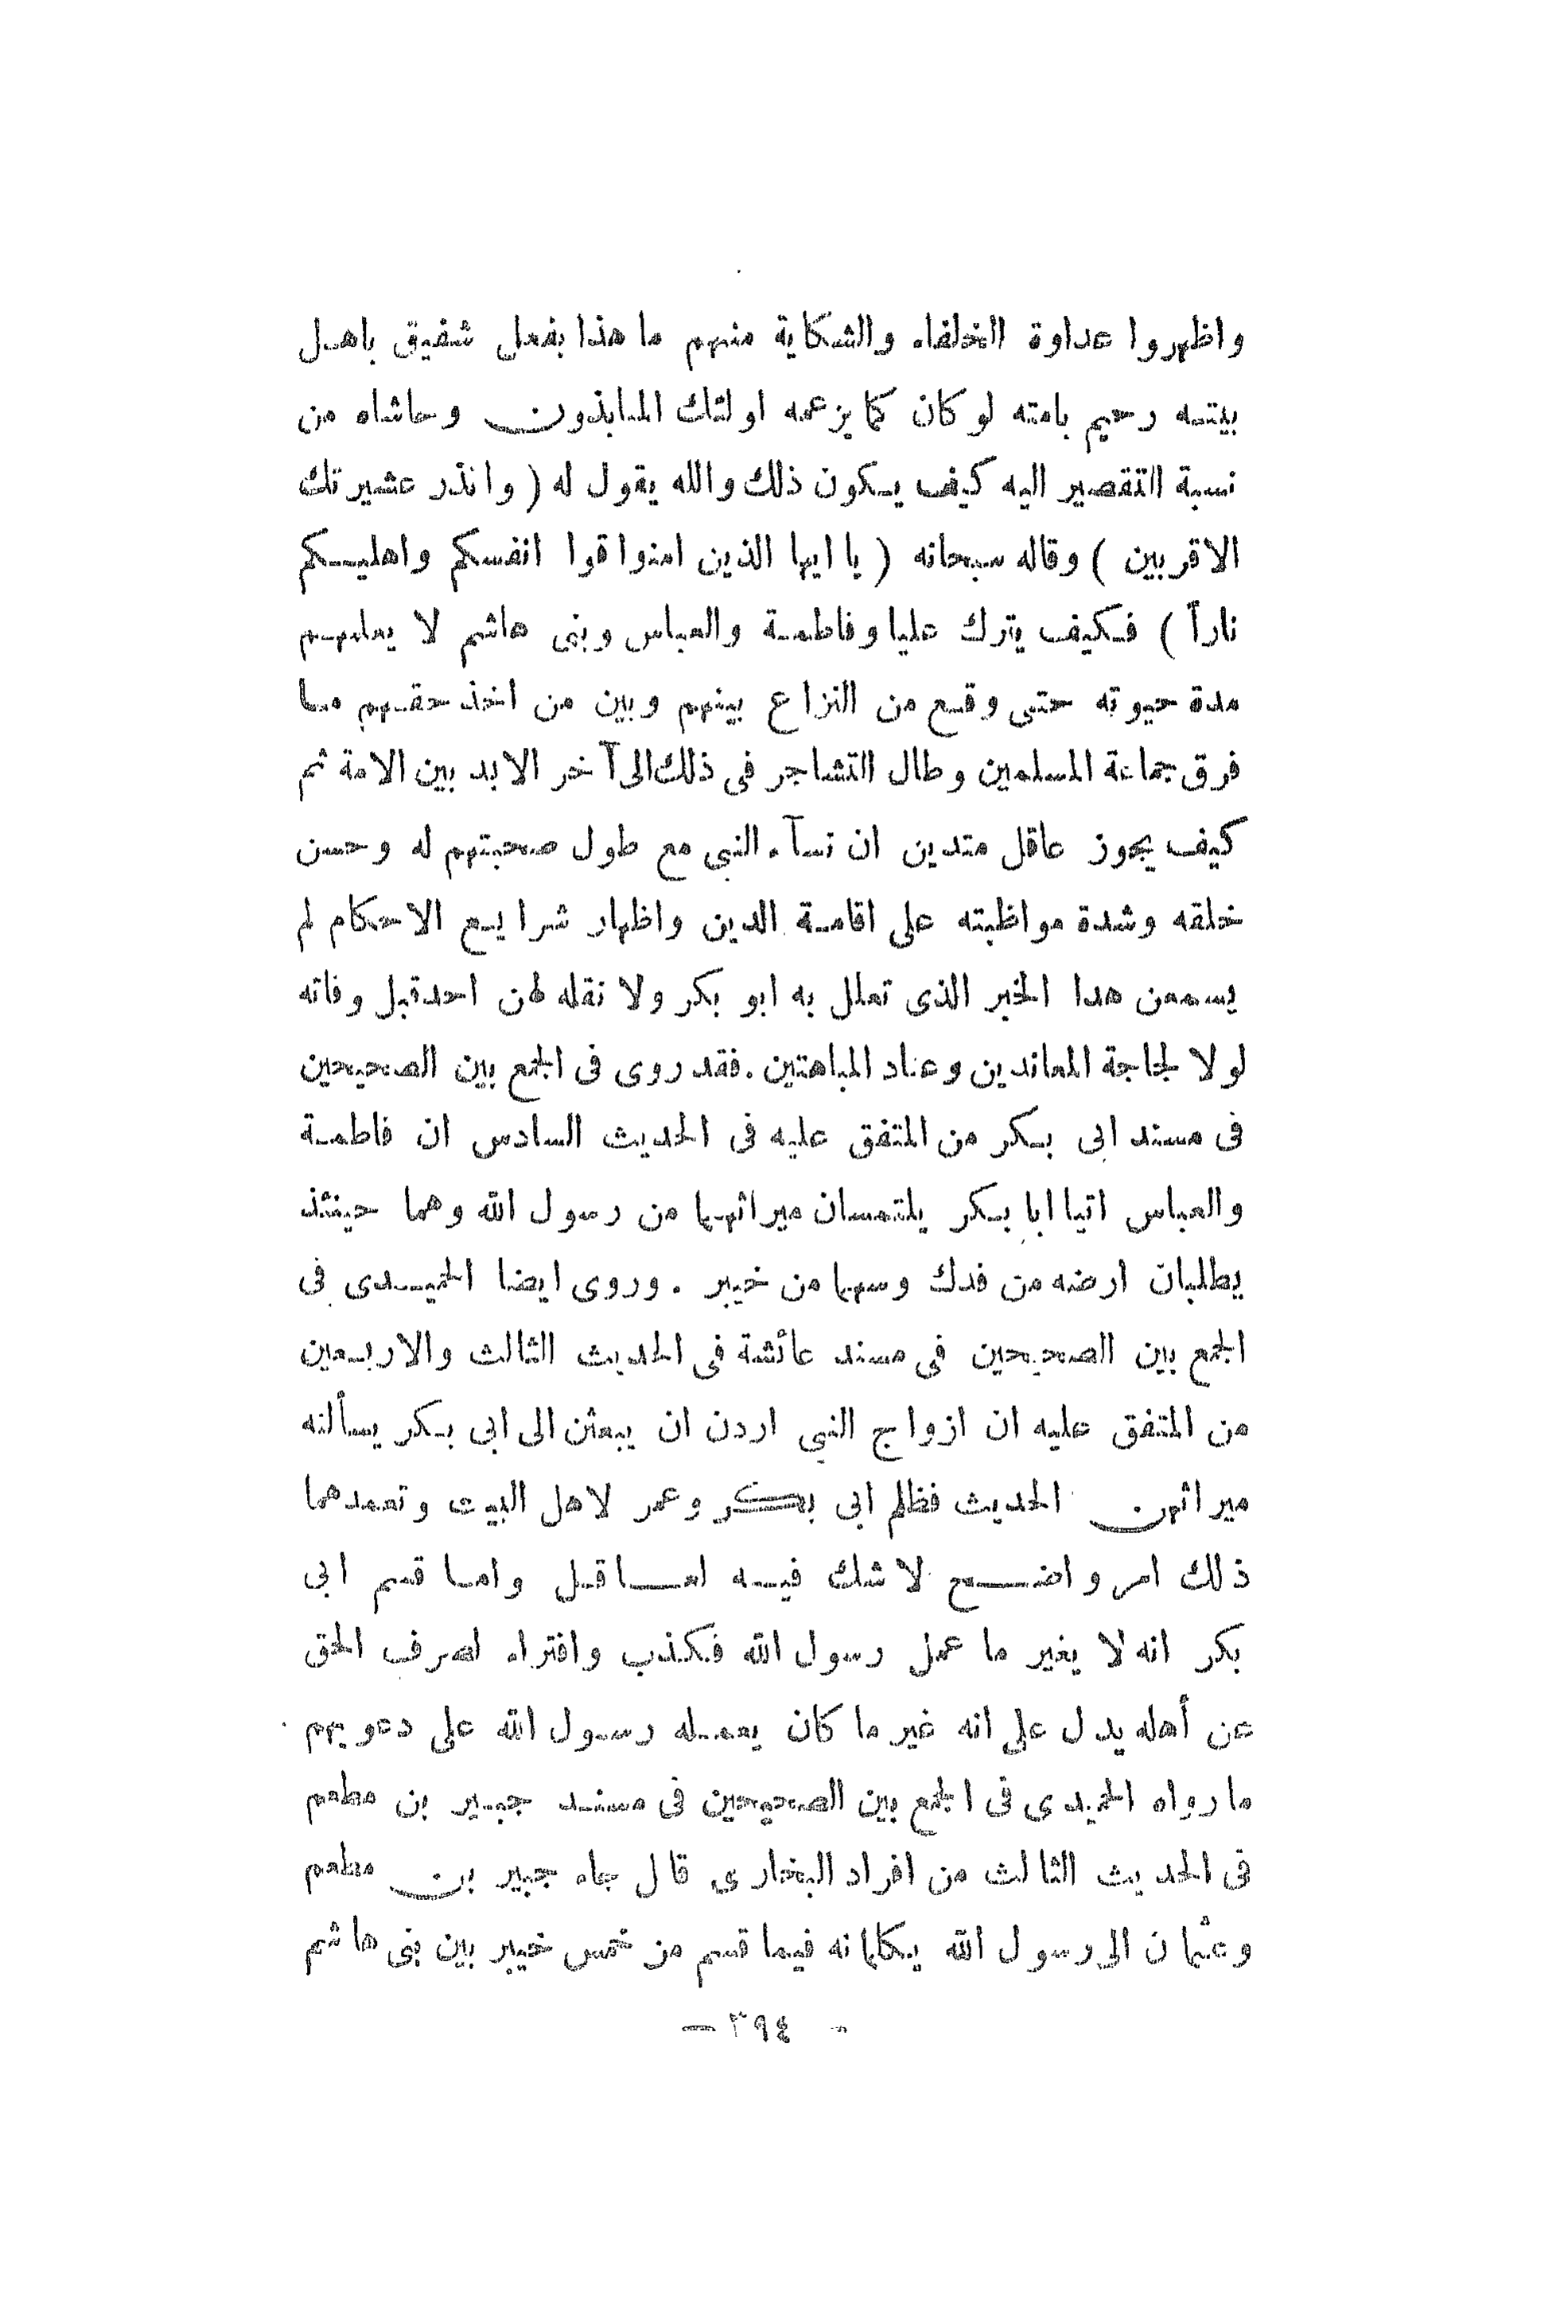 واظهروا عداوة الخلفاء والشكاية منهم ما هذا بفعل شفيق باهل
بيته رحيم بامته لو كان كما يزعمه اولئك المنابذون وحاشاه من
نسبة التقصير اليه كيف يكون ذلك والله يقول له ( وانذر عشيرتك
الاقربين ) وقاله سبحانه ( يا ايها الذين امنوا قوا انفسكم واهليكم
ناراً ) فكيف يترك عليا وفاطمة والعباس وبنى هاشم لا يعلمهم
مدة حيوته حتى وقع من النزاع بينهم وبين من اخذ حقهم ما
فرق جماعة المسلمين وطال التشاجر فى ذلك الى آخر الابد بين الامة ثم
كيف يجوز عاقل متدين ان نسآء النبى مع طول صحبتهم له وحسن
خلقه وشدة مواظبته على اقامة الدين واظهار شرايع الاحكام لم
يسمعن هدا الخبر الذى تعلل به ابو بكر ولا نقله لهن احد قبل وفاته
لولا لجاجة المعاندين وعناد المباهتين . فقد روى فى الجمع بين الصحيحين
فى مسند ابى بكر من المتفق عليه فى الحديث السادس ان فاطمة
والعباس اتيا ابا بكر يلتمسان ميراثهما من رسول الله وهما حينئذ
يطلبان ارضه من فدك وسهما من خيبر . وروى ايضا الحميدى فى
الجمع بين الصحيحين فى مسند عائشة فى الحديث الثالث والاربعين
من المتفق عليه ان ازواج النبى اردن ان يبعثن الى ابى بكر يسألنه
ميراثهن الحديث فظلم ابى بكر وعمر لاهل البيت وتعمدهما
ذلك امر واضح لا شك فيه لعاقل واما قسم ابى
بكر انه لا يغير ما عمل رسول الله فكذب وافتراء لصرف الحق
عن أهله يدل على انه غير ما كان يعمله رسول الله على دعويهم
ما رواه الحميدى فى الجمع بين الصحيحين فى مسند جبير بن مطعم
فى الحديث الثالث من افراد البخارى قال جاء جبير بن مطعم
وعثمان الى رسول الله يكلمانه فيما قسم من خمس خيبر بين بنى هاشم
- ٢٩٤ -